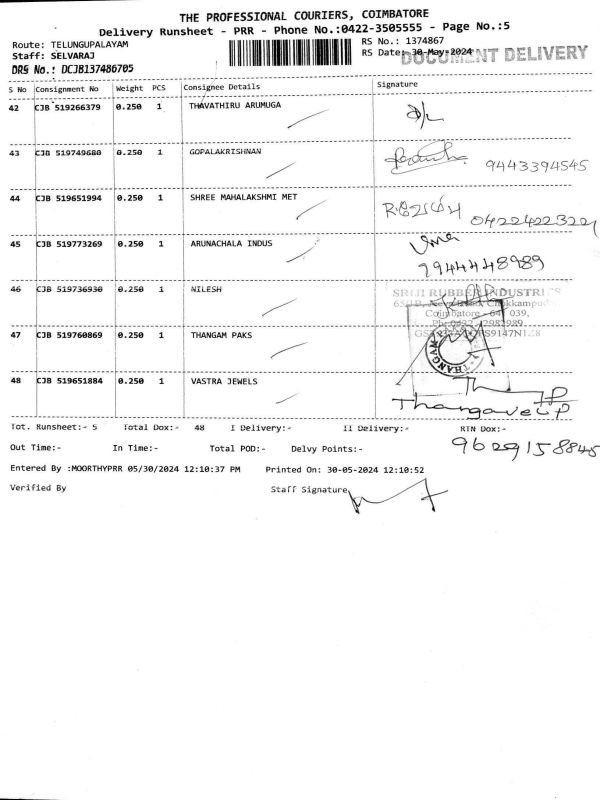 THE PROFESSIONAL COURIERS, COIMBATORE
Delivery Runsheet - PRR - Phone No.:0422-3505555 - Page No.:5
Route: TELUNGUPALAYAM
RS No.: 1374867
Staff: SELVARAJ
RS Date: 30-May-2024
DOCUMENT DELIVERY
DRS No.: DCJB137486705
S No Consignment No Weight PCS Consignee Details Signature
42 CJB 519266379 0.250 1 THAVATHIRU ARUMUGA
43 CJB 519749680 0.250 1 GOPALAKRISHNAN 9443394545
44 CJB 519651994 0.250 1 SHREE MAHALAKSHMI MET
45 CJB 519773269 0.250 1 ARUNACHALA INDUS
7944448989
46 CJB 519736930 0.250 1 NILESH
SRIJI RUBBER INDUSTRIES
Coimbatore - 641 039,
47 CJB 519760869 0.250 1 THANGAM PAKS
THANGAM
48 CJB 519651884 0.250 1 VASTRA JEWELS
Thangavel P
Tot. Runsheet:- 5 Total Dox:- 48 I Delivery:- II Delivery:- RTN Dox:-
9629158845
Out Time:- In Time:- Total POD:- Delvy Points:-
Entered By :MOORTHYPRR 05/30/2024 12:10:37 PM Printed On: 30-05-2024 12:10:52
Verified By Staff Signature